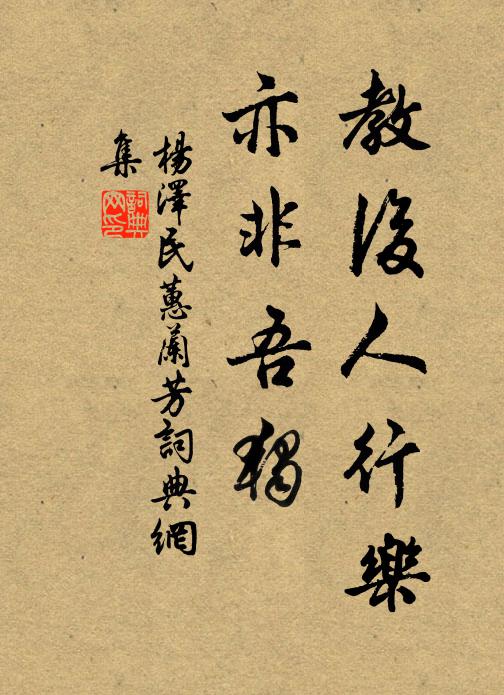 教後人行樂
亦非吾獨
楊澤民蕙蘭芳詞典網
集
詞典
网印